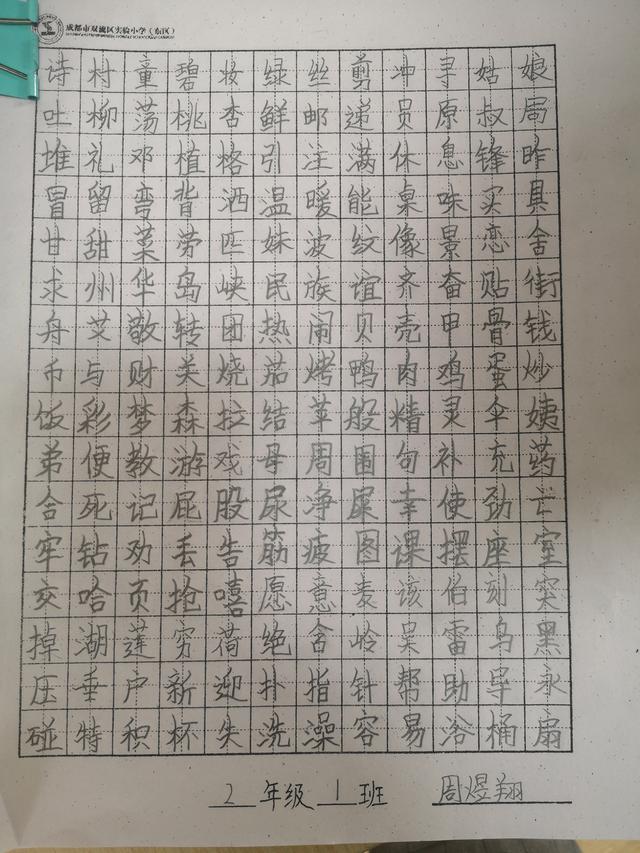 成都市双流区实验小学(东区)
诗村童碧妆绿丝剪冲寻姑娘
吐柳荡桃杏鲜邮递员原叔局
堆礼邓植格引注满休息锋昨
冒留弯背洒温暖能桌味买具
甘甜菜劳匹妹波纹像景恋舍
求州华岛峡民族谊齐奋贴街
舟艾敬转团热闹贝壳甲骨钱
币与财关烧茄烤鸭肉鸡蛋炒
饭彩梦森拉结苹般精灵伞姨
弟便教游戏母周围句补充药
合死记屁股尿净屎幸使劲亡
牢钻劝丢告筋疲图课摆座室
交哈页抢嘻愿意麦该伯刻突
掉湖莲穷荷绝含岭吴雷乌黑
压垂户新迎扑指针帮助导永
碰特积杯失洗澡容易浴桶扇
2年级1班 周煜翔